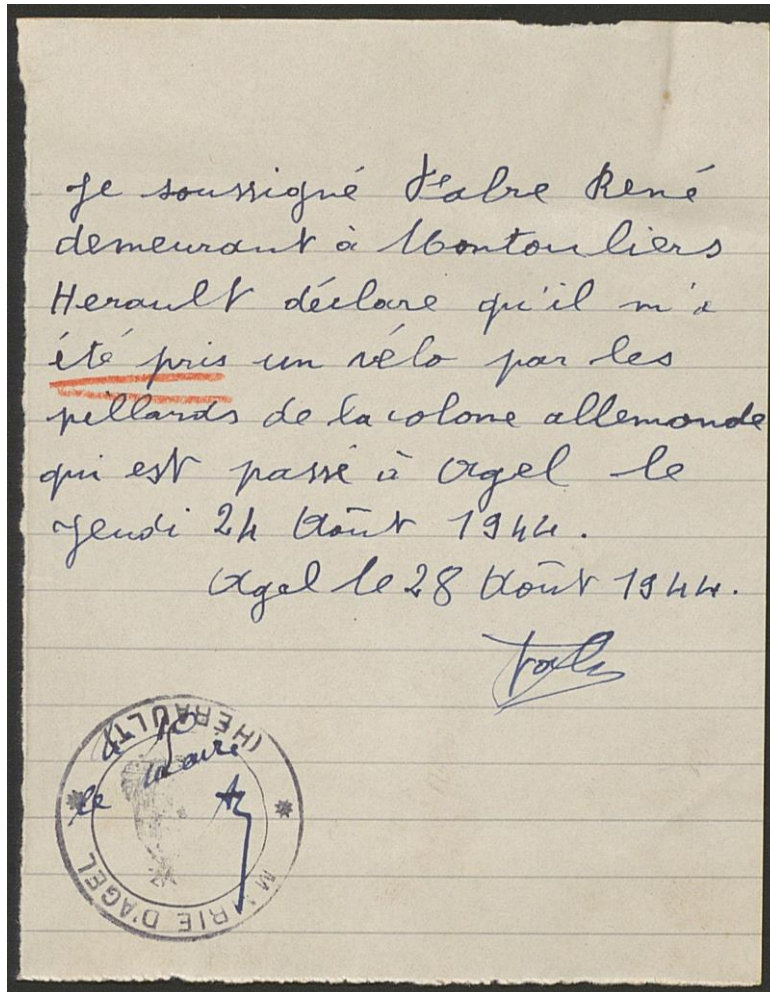 Je soussigné Fabre René
demeurant à Montouliers
Herault déclare qu'il m'a
été pris un vélo par les
pillards de la colone allemande
qui est passé à Agel le
Jeudi 24 Août 1944.
Agel le 28 Août 1944.
(HÉRAULT)
le maire
MAIRIE D'AGEL